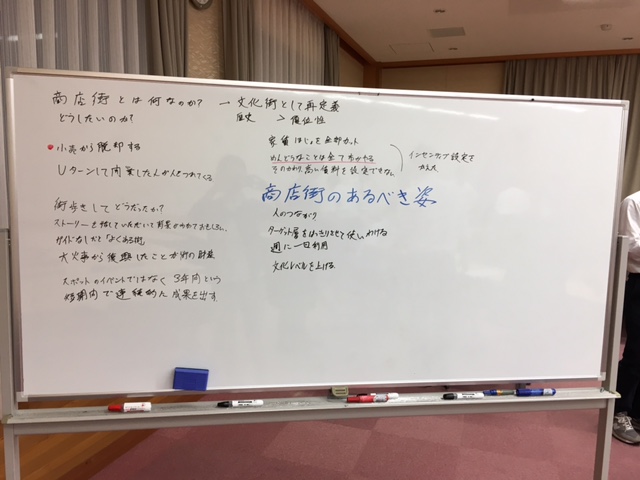 商店街とは何なのか? → 文化街として再定義
どうしたいのか? 歴史 > 優位性
小売から脱却する
Uターンして開業した人が人をつれてくる
街歩きしてどうだったか?
ストーリーを話していただいて背景がわかっておもしろい。
ガイドなしだと「よくある街」
大火事から復興したことが街の財産
スポットのイベントではなく3年間という
短期間で連続的に成果を出す
家賃 はじめを全部カット
めんどうなことは全て市がやる
そのかわり高い賃料を設定できない
インセンティブ設定を
商店街のあるべき姿
人のつながり
ターゲット層をはっきりさせて使いわける
週に一回利用
文化レベルを上げる